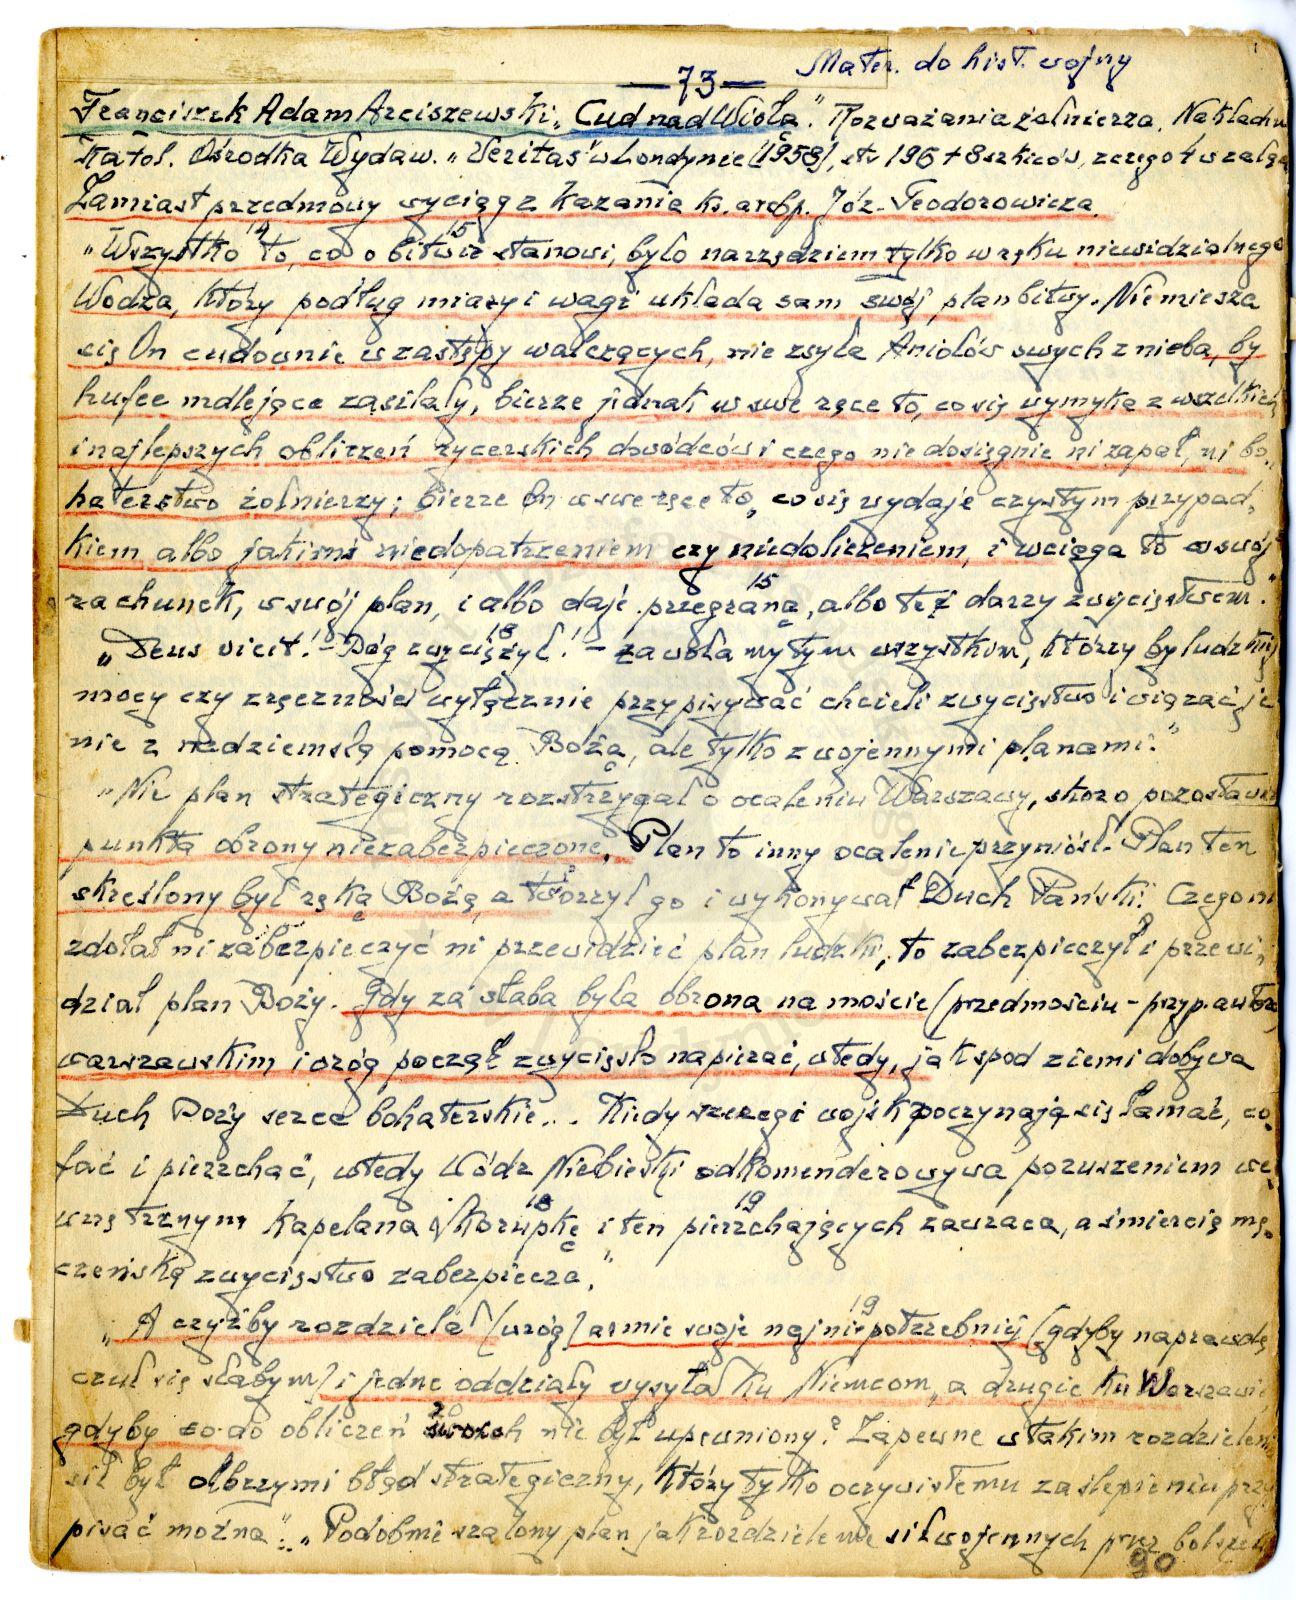 Mater. do hist. wojny
— 73 —
Franciszek Adam Arciszewski „Cud nad Wisłą". Rozważania żołnierza. Nakładem
Katol. Ośrodka Wydaw. „Veritas" w Londynie (1958), str 196 + 8 szkiców, z czego 4 w
Zamiast przedmowy wyciąg z kazania ks. arcbp. Józ. Teodorowicza.
14 15
„Wszystko to, co o bitwie stanowi, było narzędziem tylko w ręku niewidzialnego
Wodza, który podług miary i wagi układa sam swój plan bitwy. Nie miesza
się On cudownie w zastępy walczących, nie zsyła Aniołów swych z nieba, by
hufce mdlejące zasilały, bierze jednak w swe ręce to, co się wymyka z wszelkich
i najlepszych obliczeń rycerskich dowódców i czego nie dosięgnie ni zapał, ni bo-
haterstwo żołnierzy; bierze On w swe ręce to, co się wydaje czystym przypad-
kiem albo jakimś niedopatrzeniem czy niedoliczeniem, i wciąga to w swój
15
rachunek, w swój plan, i albo daje przegraną, albo też darzy zwycięstwem."
18
„Deus vicit! - Bóg zwyciężył! - zawoła my tym wszystkim, którzy by ludzkiej
mocy czy zręczności wyłącznie przypisywać chcieli zwycięstwo i wiązać je
nie z nadziemską pomocą Bożą, ale tylko z wojennymi planami."
„Nie plan strategiczny rozstrzygał o ocaleniu Warszawy, skoro pozostawił
punkta obrony niezabezpieczone. Plan to inny ocalenie przyniósł. Plan ten
skreślony był ręką Bożą, a tworzył go i wykonywał Duch Pański. Czego ni
zdołał ni zabezpieczyć ni przewidzieć plan ludzki, to zabezpieczył i przewi-
dział plan Boży. Gdy za słaba była obrona na moście (przedmościu - przyp. autora)
warszawskim i wróg począł zwycięsko napierać, wtedy, jak spod ziemi dobywa
Duch Boży serca bohaterskie... Kiedy szeregi wojsk poczynają się łamać, co-
fać i pierzchać, wtedy Wódz Niebieski odkomenderowywa poruszeniem we-
18 19
wnętrznym kapelana Skorupkę i ten pierzchających zawraca, a śmiercią mę-
czeńską zwycięstwo zabezpiecza."
19
„A czyżby rozdzielał (wróg) armie swoje najniepotrzebniej (gdyby naprawdę
czuł się słabym) i jedne oddziały wysyłał ku Niemcom, a drugie ku Warszawie,
20
gdyby co do obliczeń swoich nie był upewniony? Zapewne w takim rozdzieleniu
sił był olbrzymi błąd strategiczny, który tylko oczywistemu zaślepieniu przy
pisać można". „Podobnie szalony plan jak rozdzielenie sił wojennych przez
90